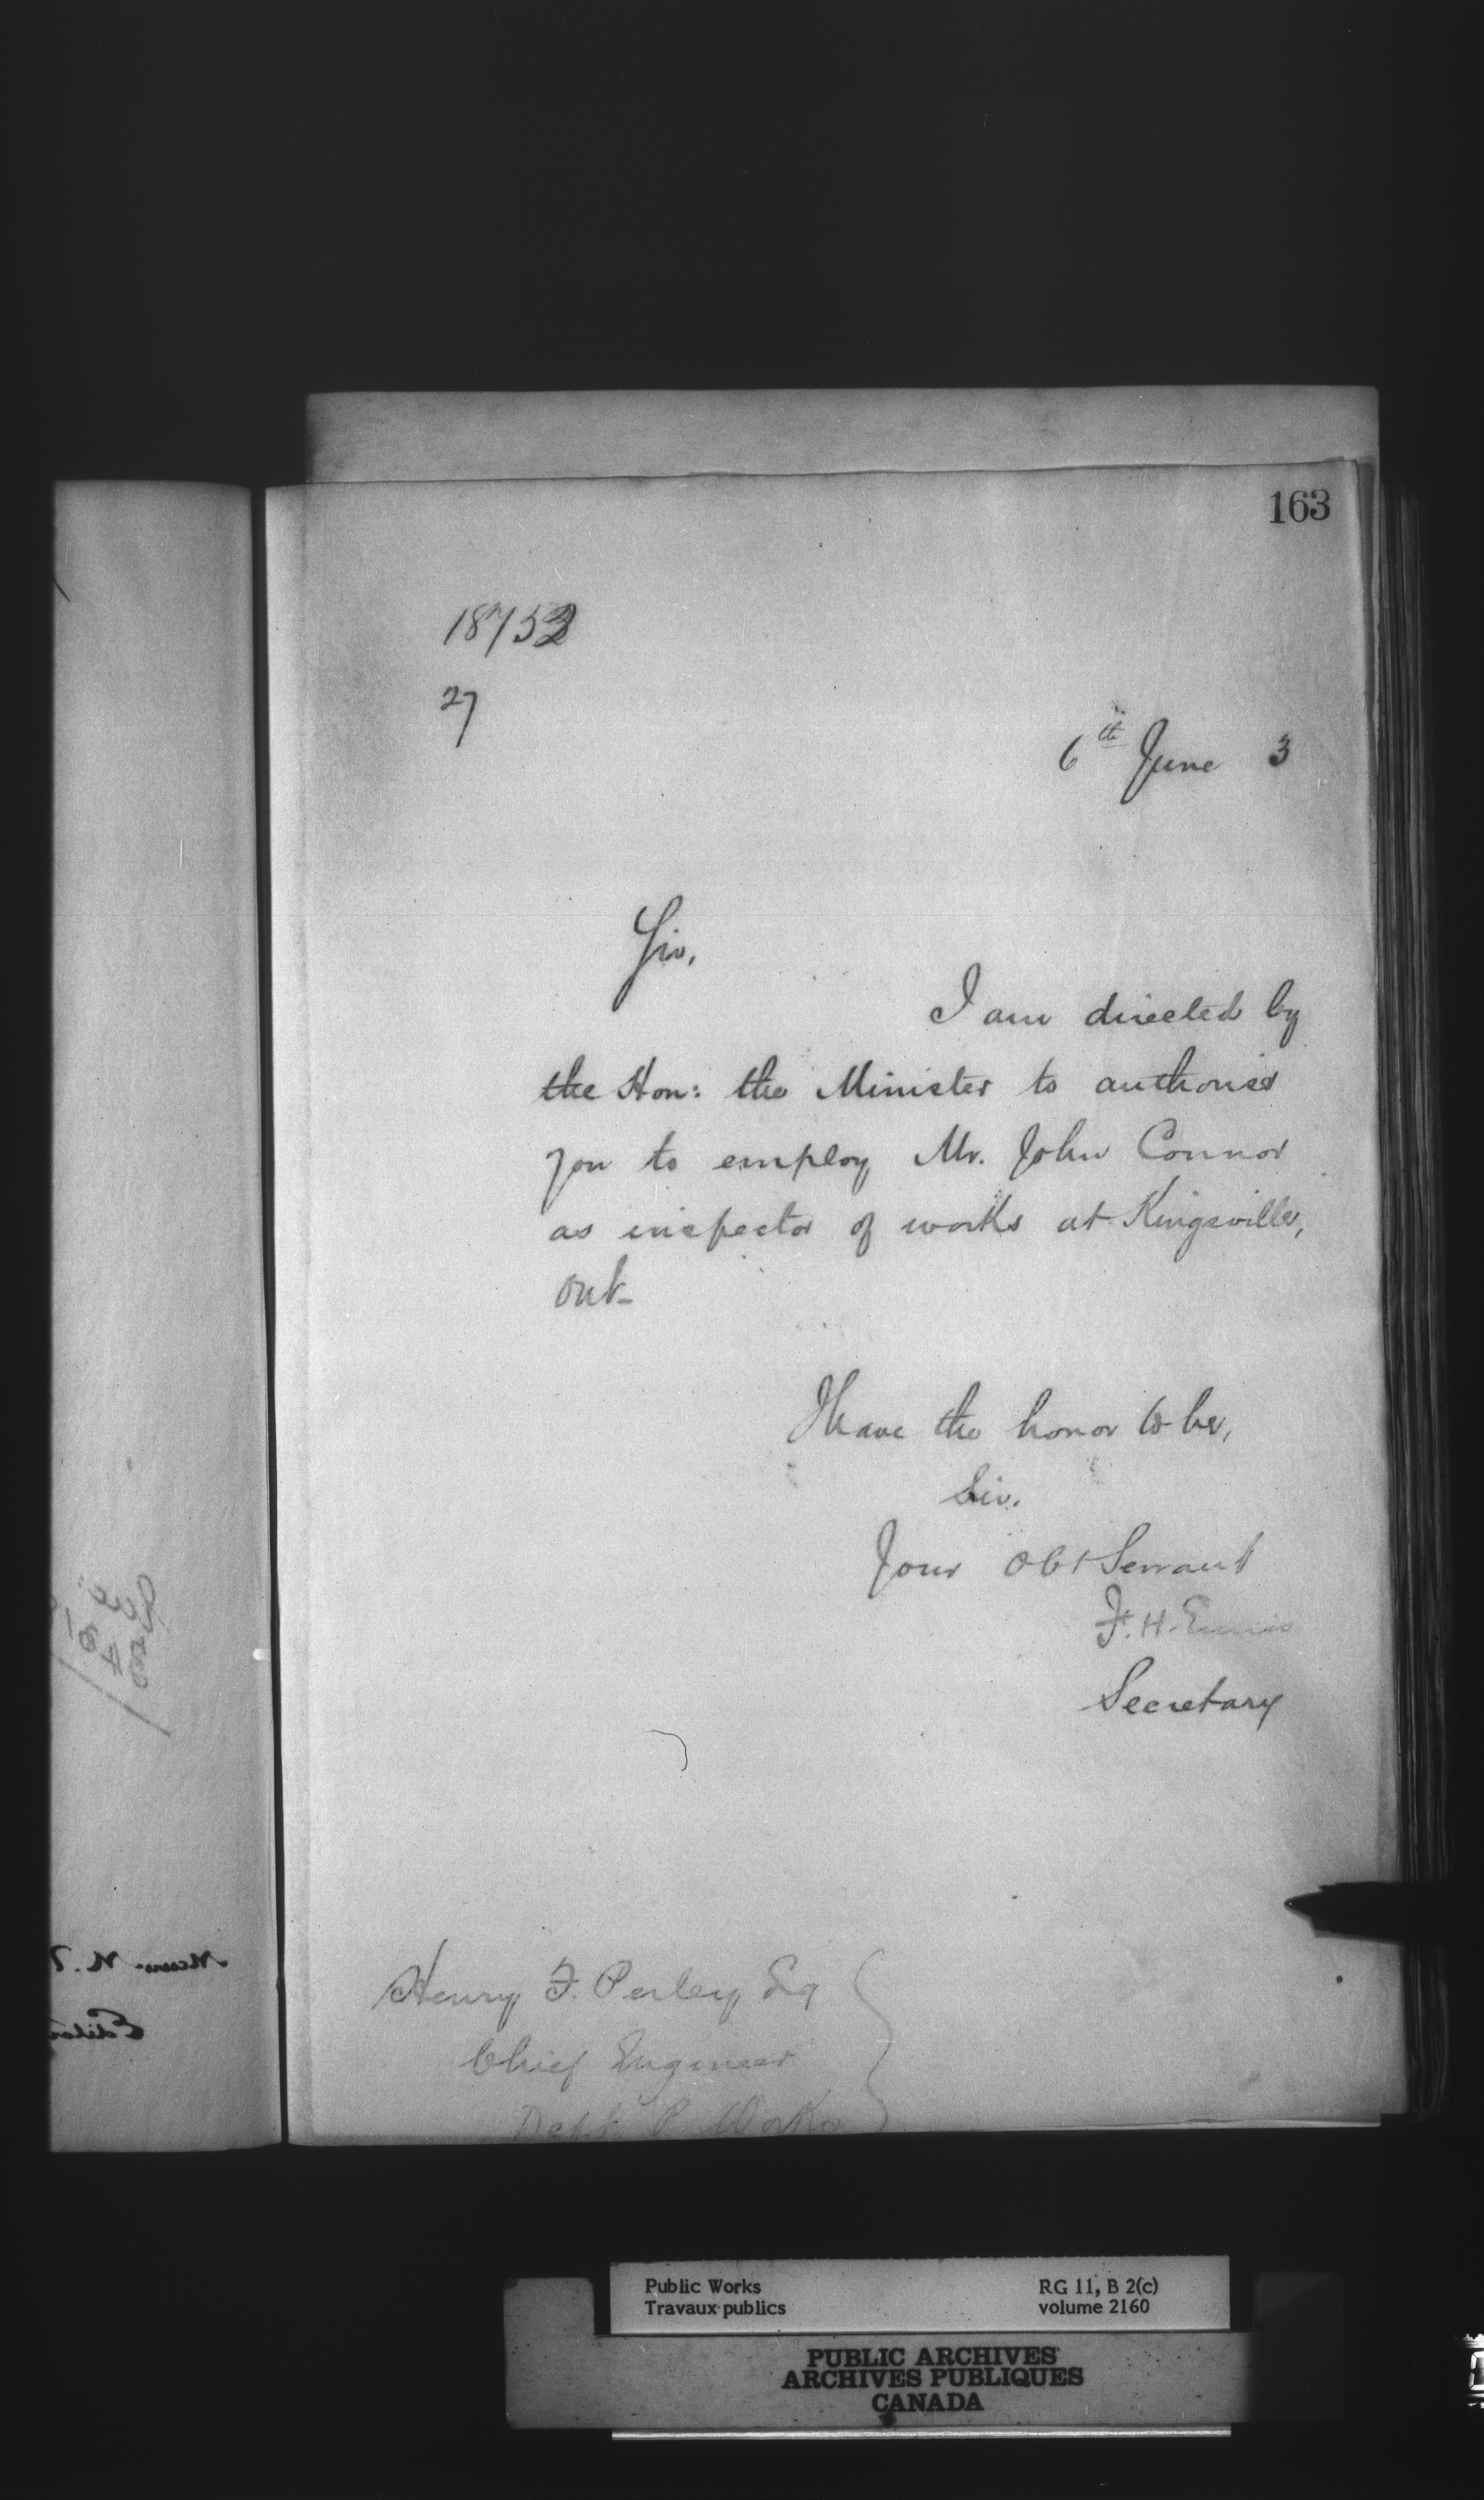 163
18753
27
6th June 3
Sir,
I am directed by
the Hon: the Minister to authorise
you to employ Mr. John Connor
as inspector of works at Kingsville,
Ont-
I have the honor to be,
Sir.
Your Obt Servant
F. H. Ennis
Secretary
Henry F. Perley Esq
Chief Engineer
Dept. P. Works
Public Works
Travaux publics
RG 11, B 2(c)
volume 2160
PUBLIC ARCHIVES
ARCHIVES PUBLIQUES
CANADA